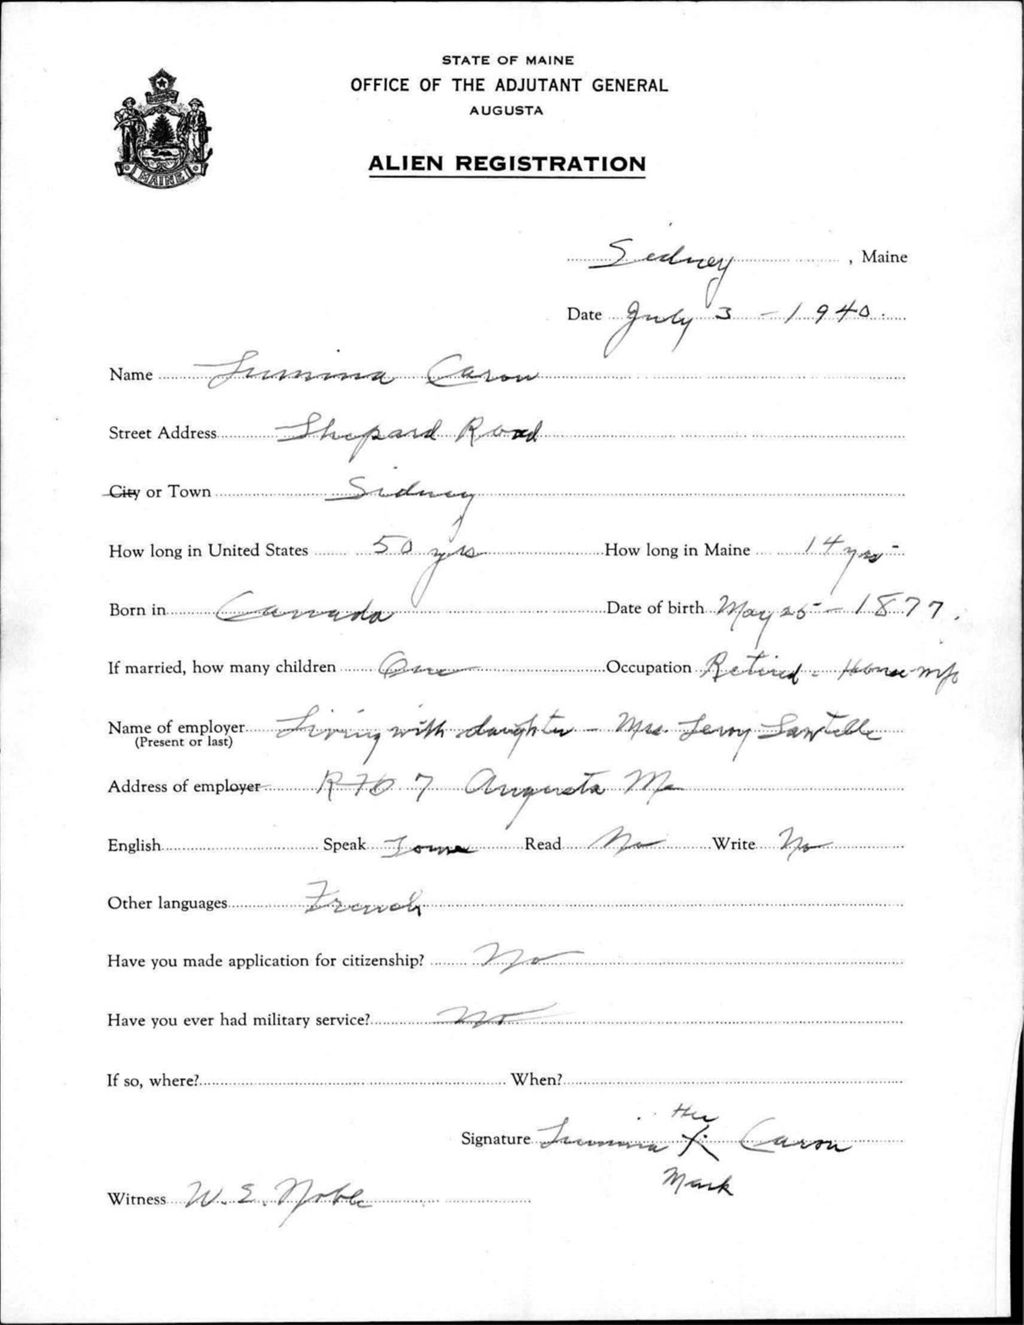 STATE OF MAINE
OFFICE OF THE ADJUTANT GENERAL
AUGUSTA
ALIEN REGISTRATION
MAINE
Sidney, Maine
Date July 3 - 1940.
Name Lumina Caron
Street Address Shepard Road
City or Town Sidney
How long in United States 50 yrs How long in Maine 14 yrs -
Born in Canada Date of birth May 25 - 1877.
If married, how many children One Occupation Retired - House
Name of employer Living with daughter - Mrs. Leroy Sawtelle
(Present or last)
Address of employer R F D 7 Augusta Me
English Speak Some Read No Write No
Other languages French
Have you made application for citizenship? No
Have you ever had military service? No
If so, where? When?
Her
Signature Lumina X Caron
Mark
Witness W. E. Noble